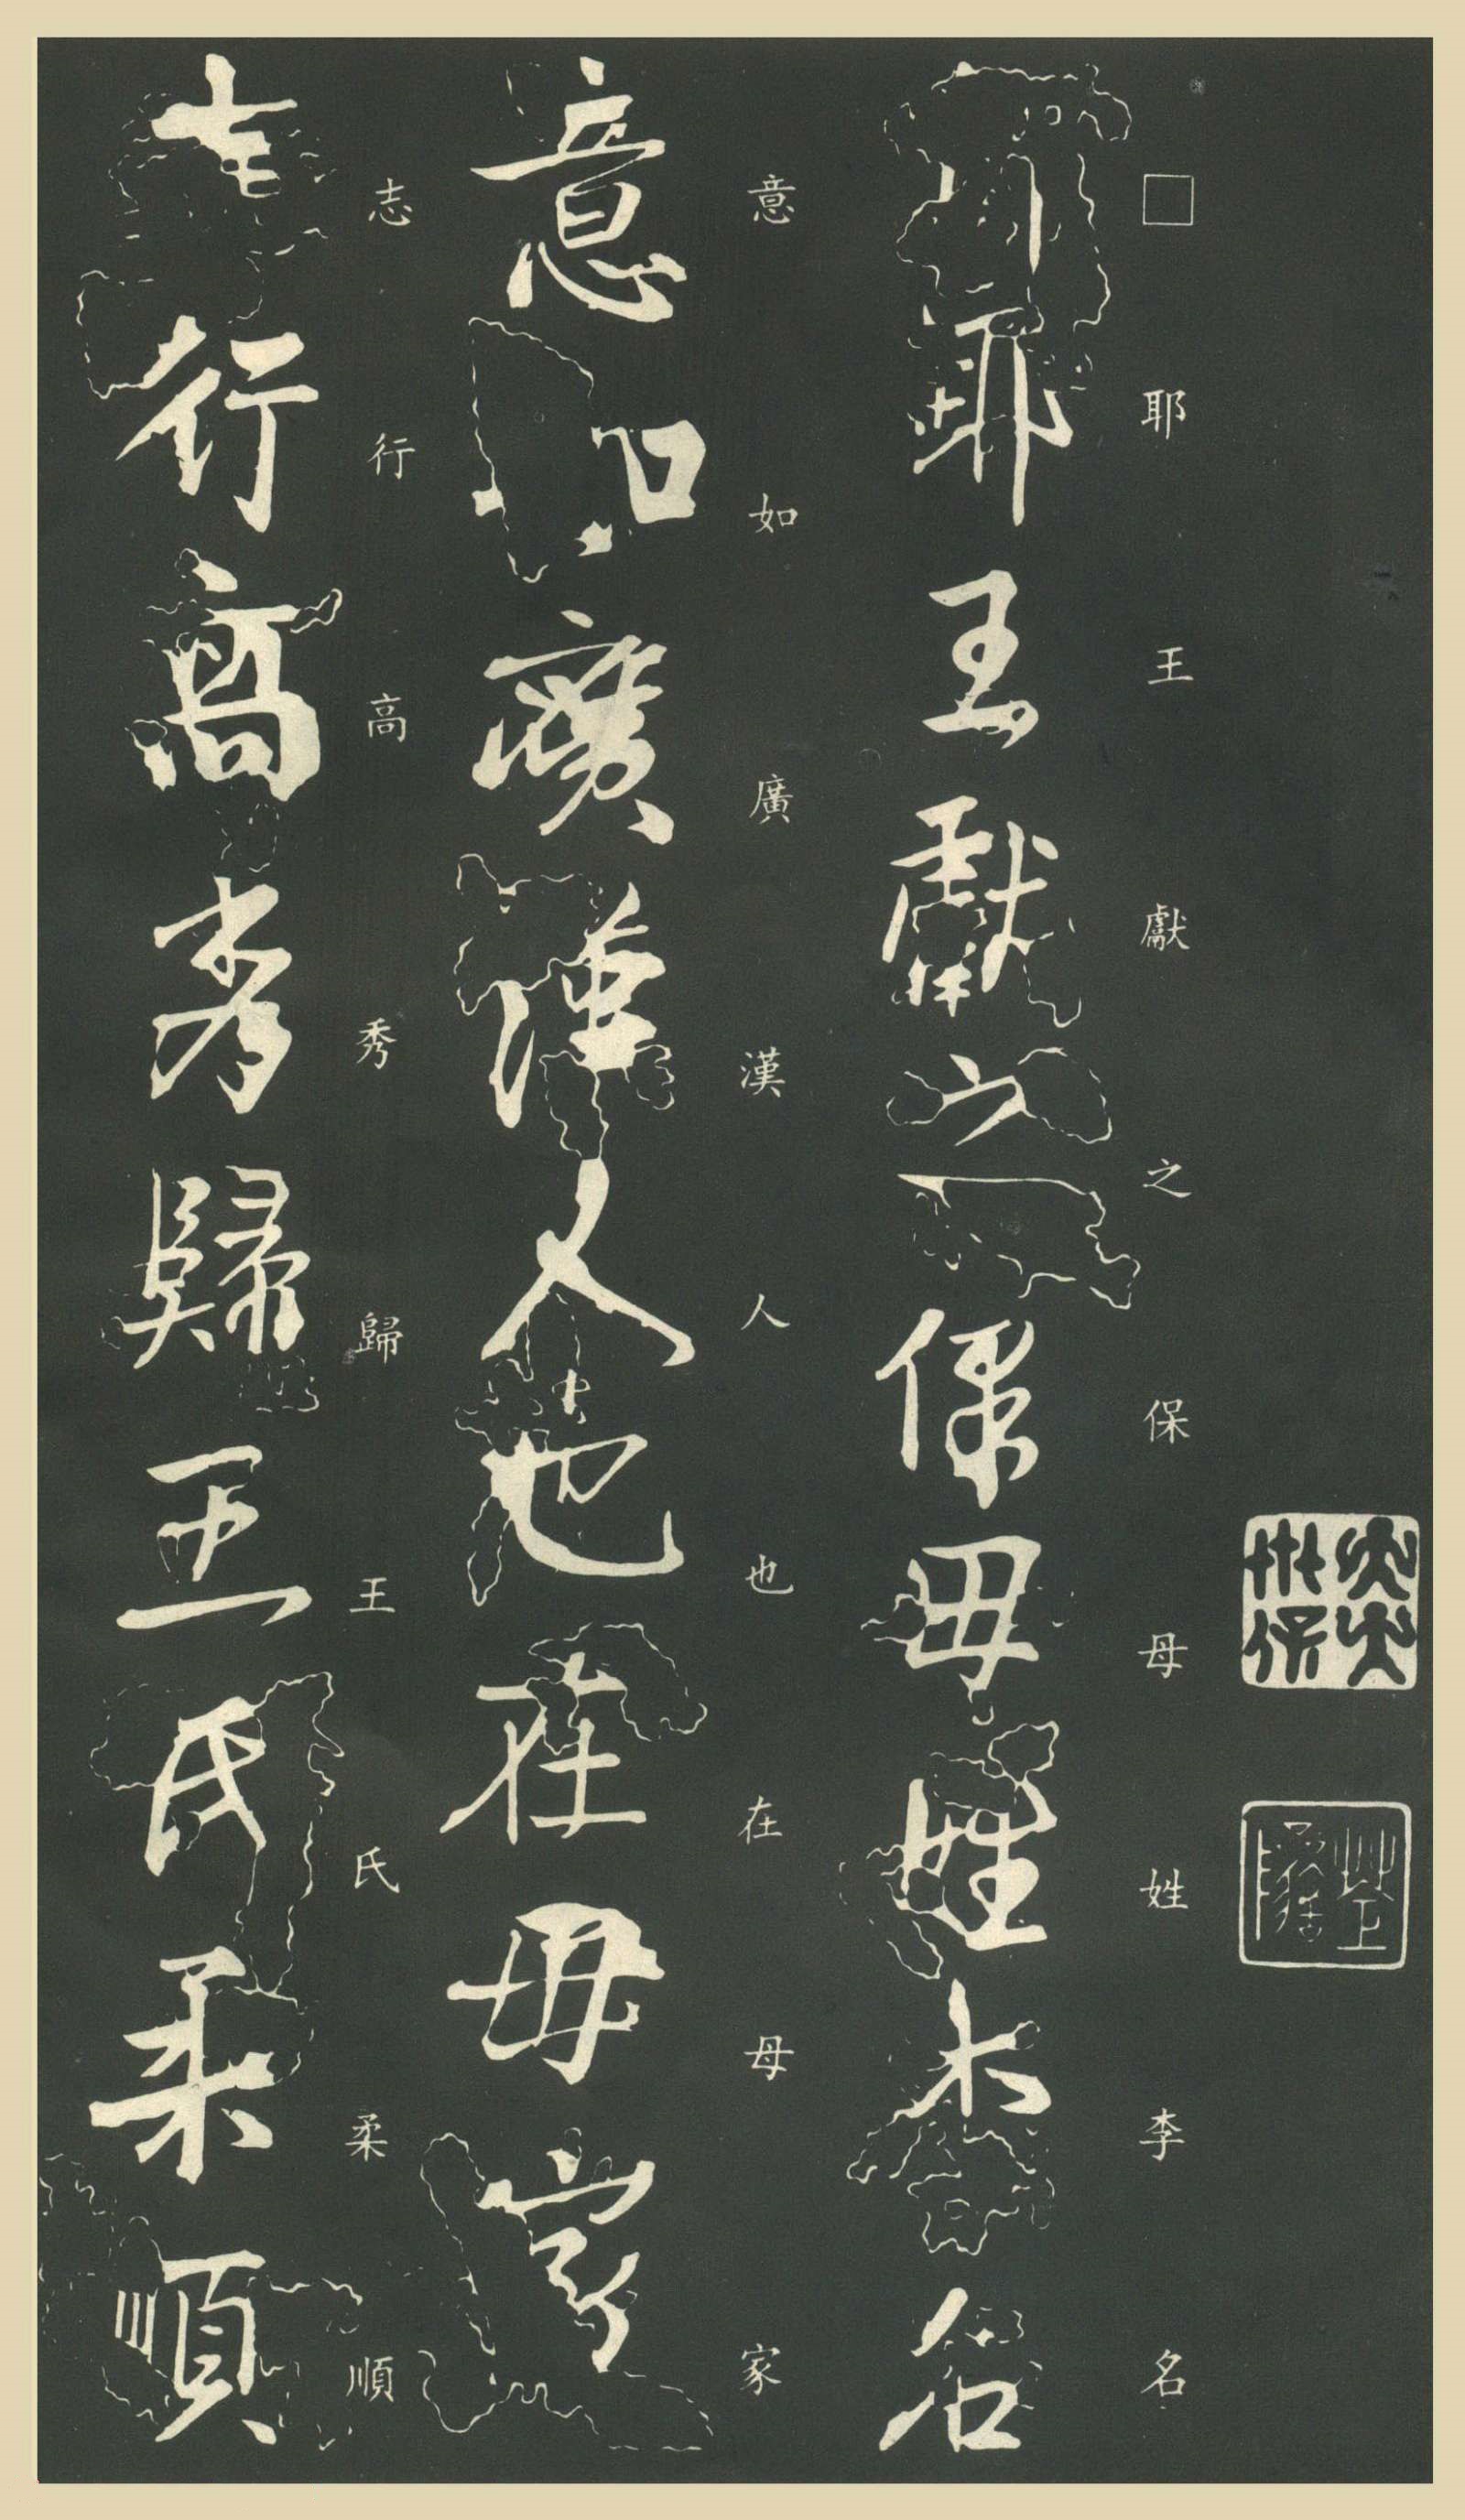 □耶王獻之保母姓李名
意如廣漢人也在母家
志行高秀歸王氏柔順